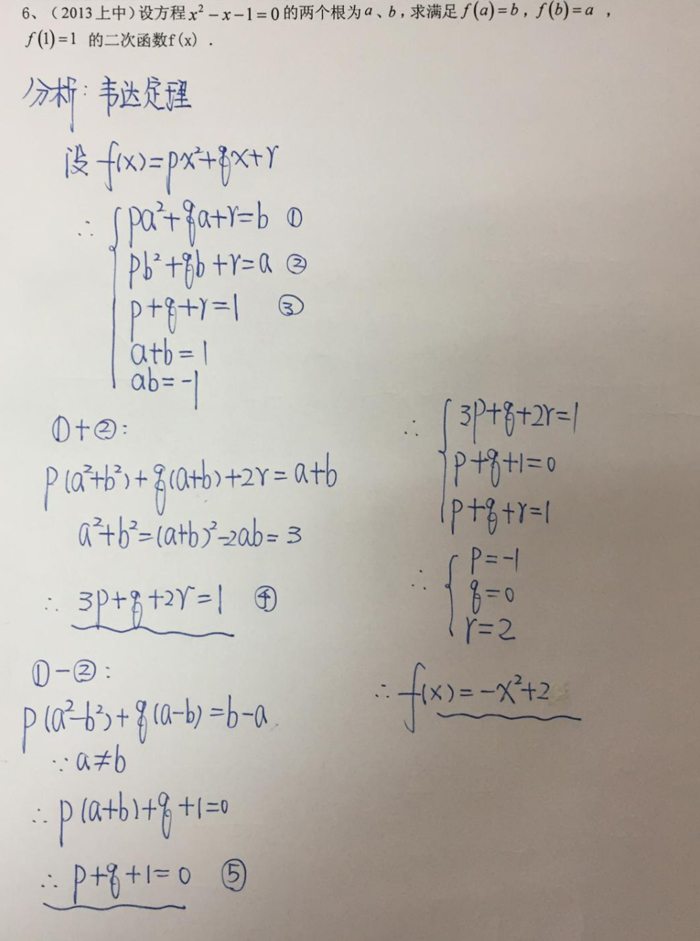 6、(2013上中)设方程x²-x-1=0的两个根为a、b,求满足f(a)=b,f(b)=a,
f(1)=1 的二次函数f(x).
分析:韦达定理
设 f(x)=px²+qx+r
∴ { pa²+qa+r=b ①
pb²+qb+r=a ②
p+q+r=1 ③
a+b=1
ab=-1
①+②:
p(a²+b²)+q(a+b)+2r=a+b
a²+b²=(a+b)²-2ab=3
∴ 3p+q+2r=1 ④
①-②:
p(a²-b²)+q(a-b)=b-a
∵a≠b
∴p(a+b)+q+1=0
∴ p+q+1=0 ⑤
∴ { 3p+q+2r=1
p+q+1=0
p+q+r=1
∴ { p=-1
q=0
r=2
∴f(x)=-x²+2